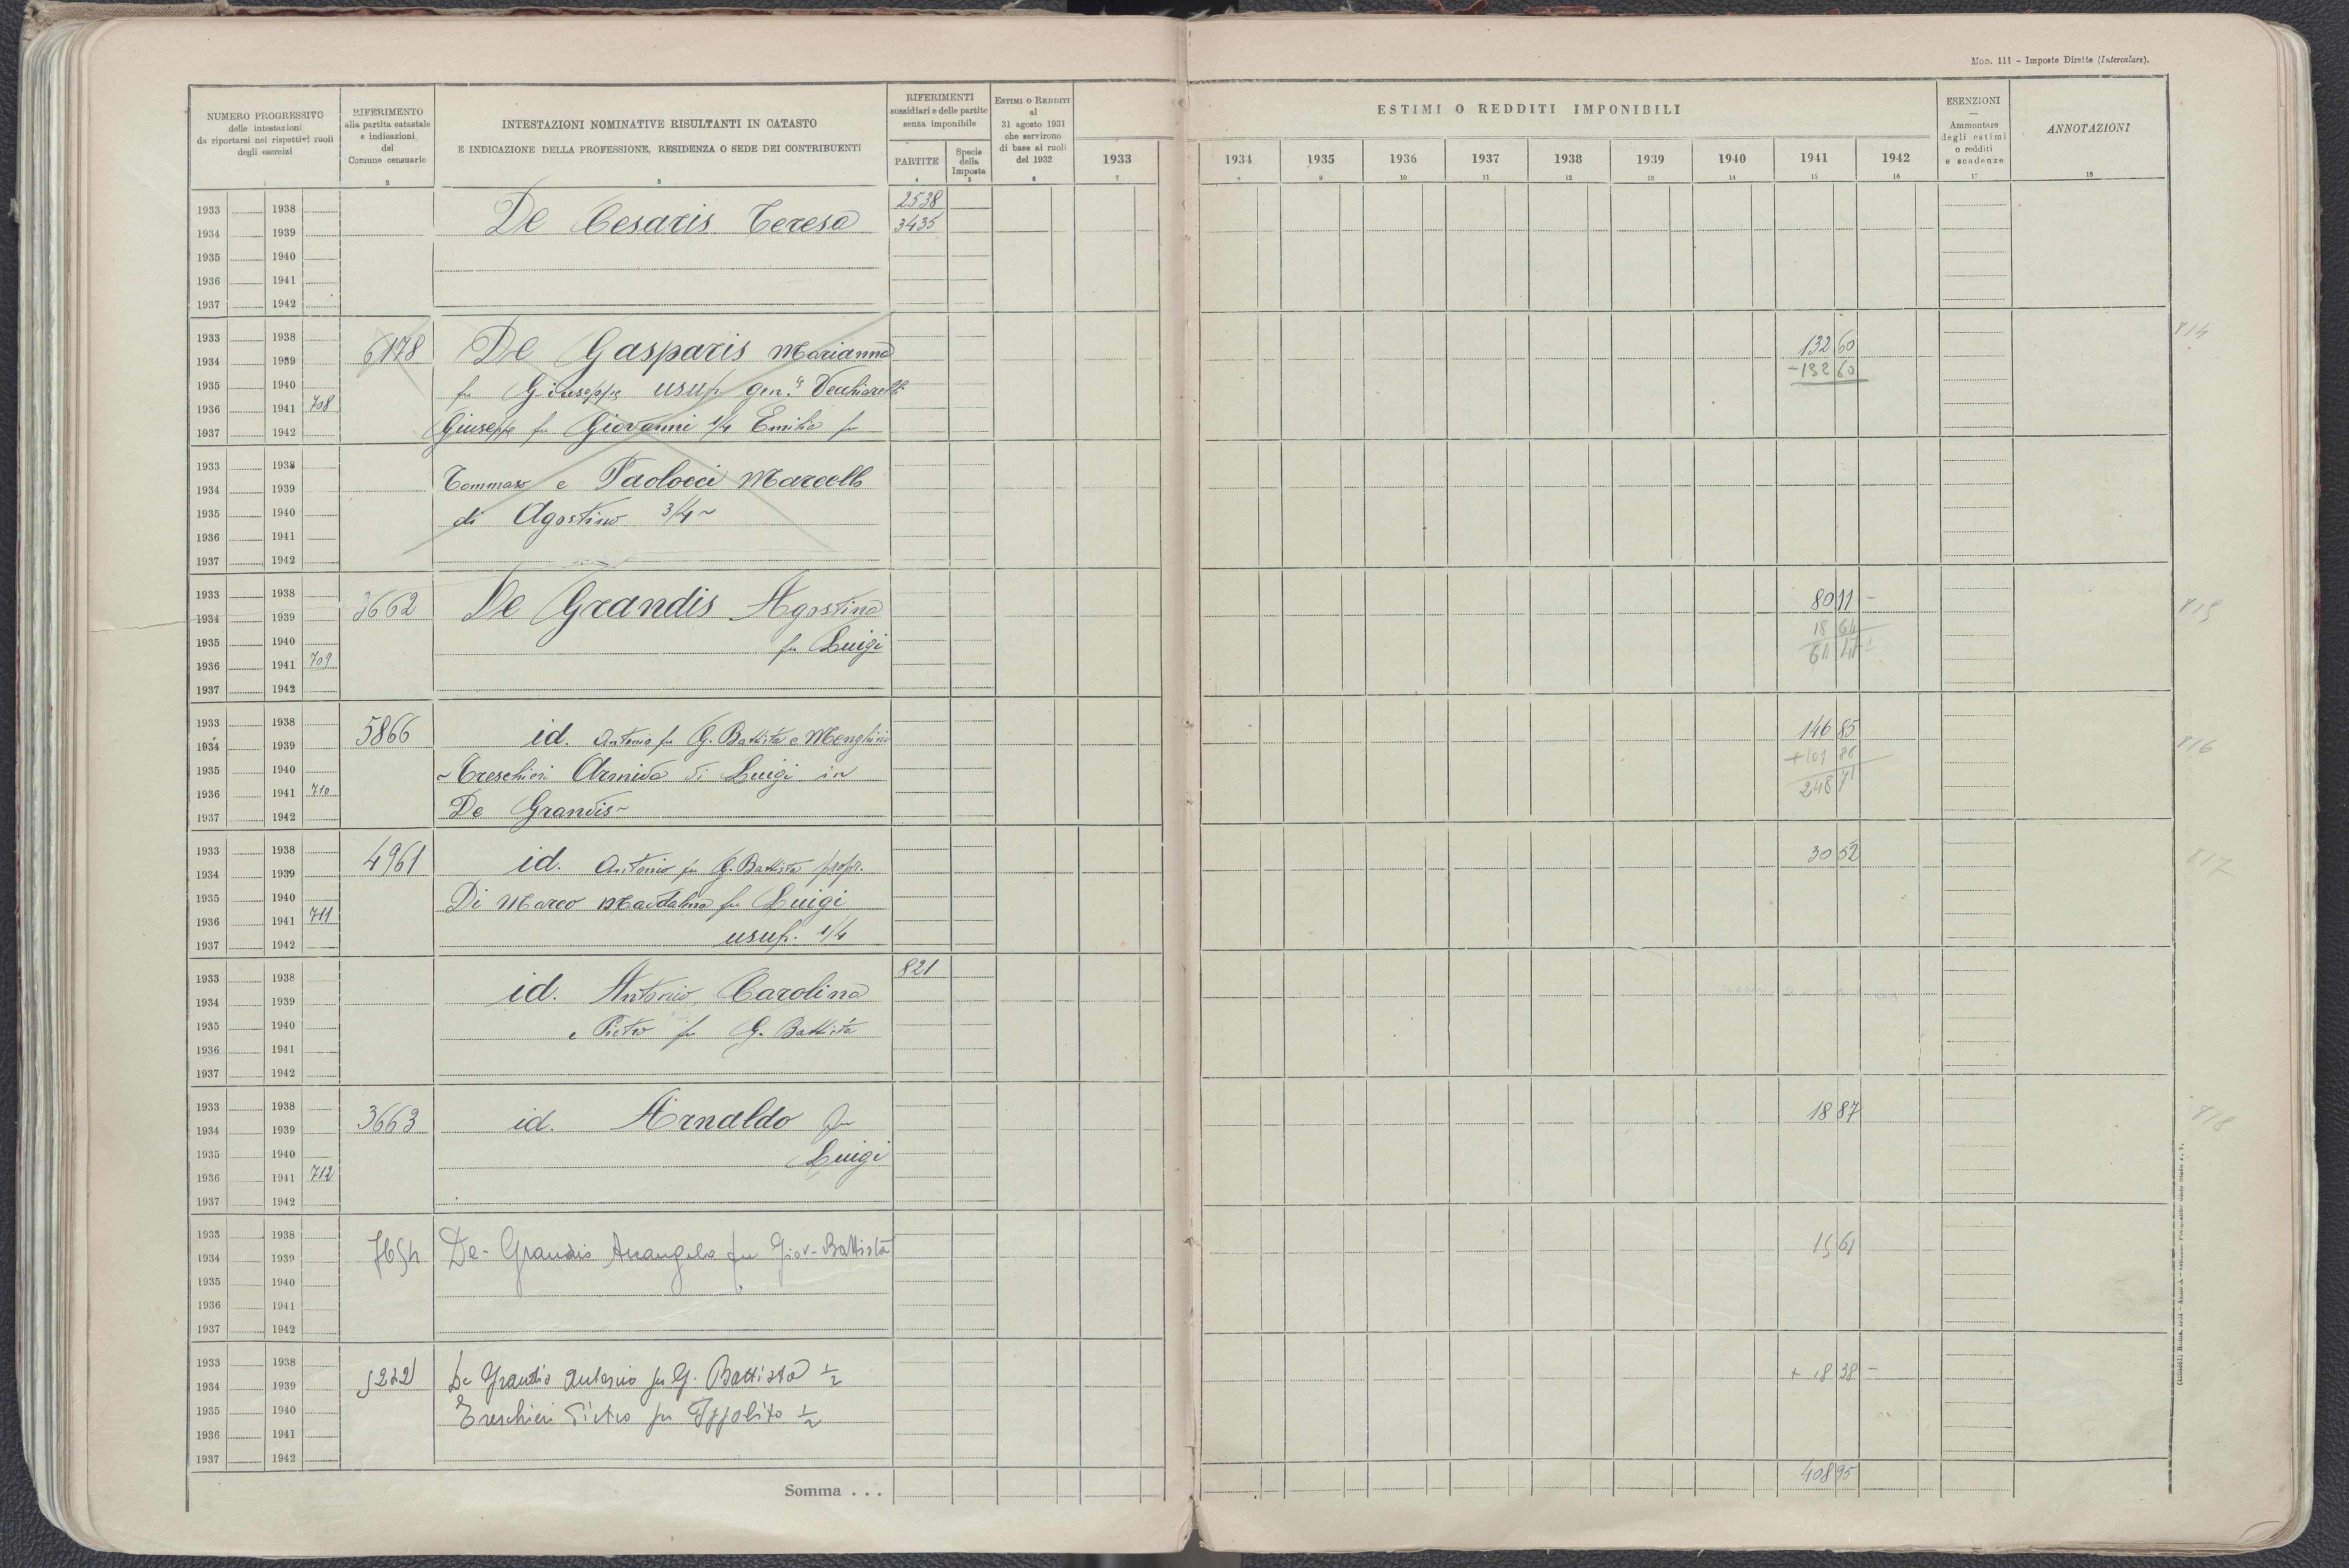 Mod. 111 - Imposte Dirette (Intercalare).
NUMERO PROGRESSIVO
delle intestazioni
da riportarsi nei rispettivi ruoli
degli esercizi
1
RIFERIMENTO
alla partita catastale
e indicazioni
del
Comune censuario
2
INTESTAZIONI NOMINATIVE RISULTANTI IN CATASTO
E INDICAZIONE DELLA PROFESSIONE, RESIDENZA O SEDE DEI CONTRIBUENTI
3
RIFERIMENTI
sussidiari e delle partite
senza imponibile
PARTITE
4
Specie
della
Imposta
5
ESTIMI O REDDITI
al
31 agosto 1931
che servirono
di base ai ruoli
del 1932
6
ESTIMI O REDDITI IMPONIBILI
1933 1934 1935 1936 1937 1938 1939 1940 1941 1942
7 8 9 10 11 12 13 14 15 16
ESENZIONI
Ammontare
degli estimi
o redditi
e scadenze
17
ANNOTAZIONI
18
1933 1938 2538
1934 1939 De Cesaris Teresa 3435
1935 1940
1936 1941
1937 1942
1933 1938 6178 De Gasparis Marianna 132 60 814
1934 1939 -132 60
1935 1940 fu Giuseppe usuf. gen. Vecchiarelli
1936 1941 708
1937 1942 Giuseppe fu Giovanni 1/4 Emilia fu
1933 1938
1934 1939 Tommaso e Paolocci Marcello
1935 1940 di Agostino 3/4 ~
1936 1941
1937 1942
1933 1938 3662 De Grandis Agostino 80 11 - 815
1934 1939 18 64
1935 1940 fu Luigi 61 47
1936 1941 709
1937 1942
1933 1938 5866 id. Antonio fu G. Battista e Menghini 146 85 816
1934 1939 +101 86
1935 1940 ~ Creschieri Armida di Luigi in 248 71
1936 1941 710
1937 1942 De Grandis ~
1933 1938 4961 id. Antonio fu G. Battista propr. 30 52 817
1934 1939
1935 1940 Di Marco Maddalena fu Luigi
1936 1941 711
1937 1942 usuf. 1/4
1933 1938 821
1934 1939 id. Antonio, Carolina
1935 1940 e Pietro fu G. Battista
1936 1941
1937 1942
1933 1938 3663 id. Arnaldo fu 18 87 818
1934 1939
1935 1940 Luigi
1936 1941 712
1937 1942
1933 1938 De-Grandis Arcangelo fu Giov-Battista 15 61
1934 1939
1935 1940
1936 1941
1937 1942
1933 1938 5222 De Grandis Antonio fu G. Battista 1/2 + 18 38 -
1934 1939
1935 1940 Creschieri Pietro fu Ippolito 1/2
1936 1941
1937 1942
Somma . . . 408 95